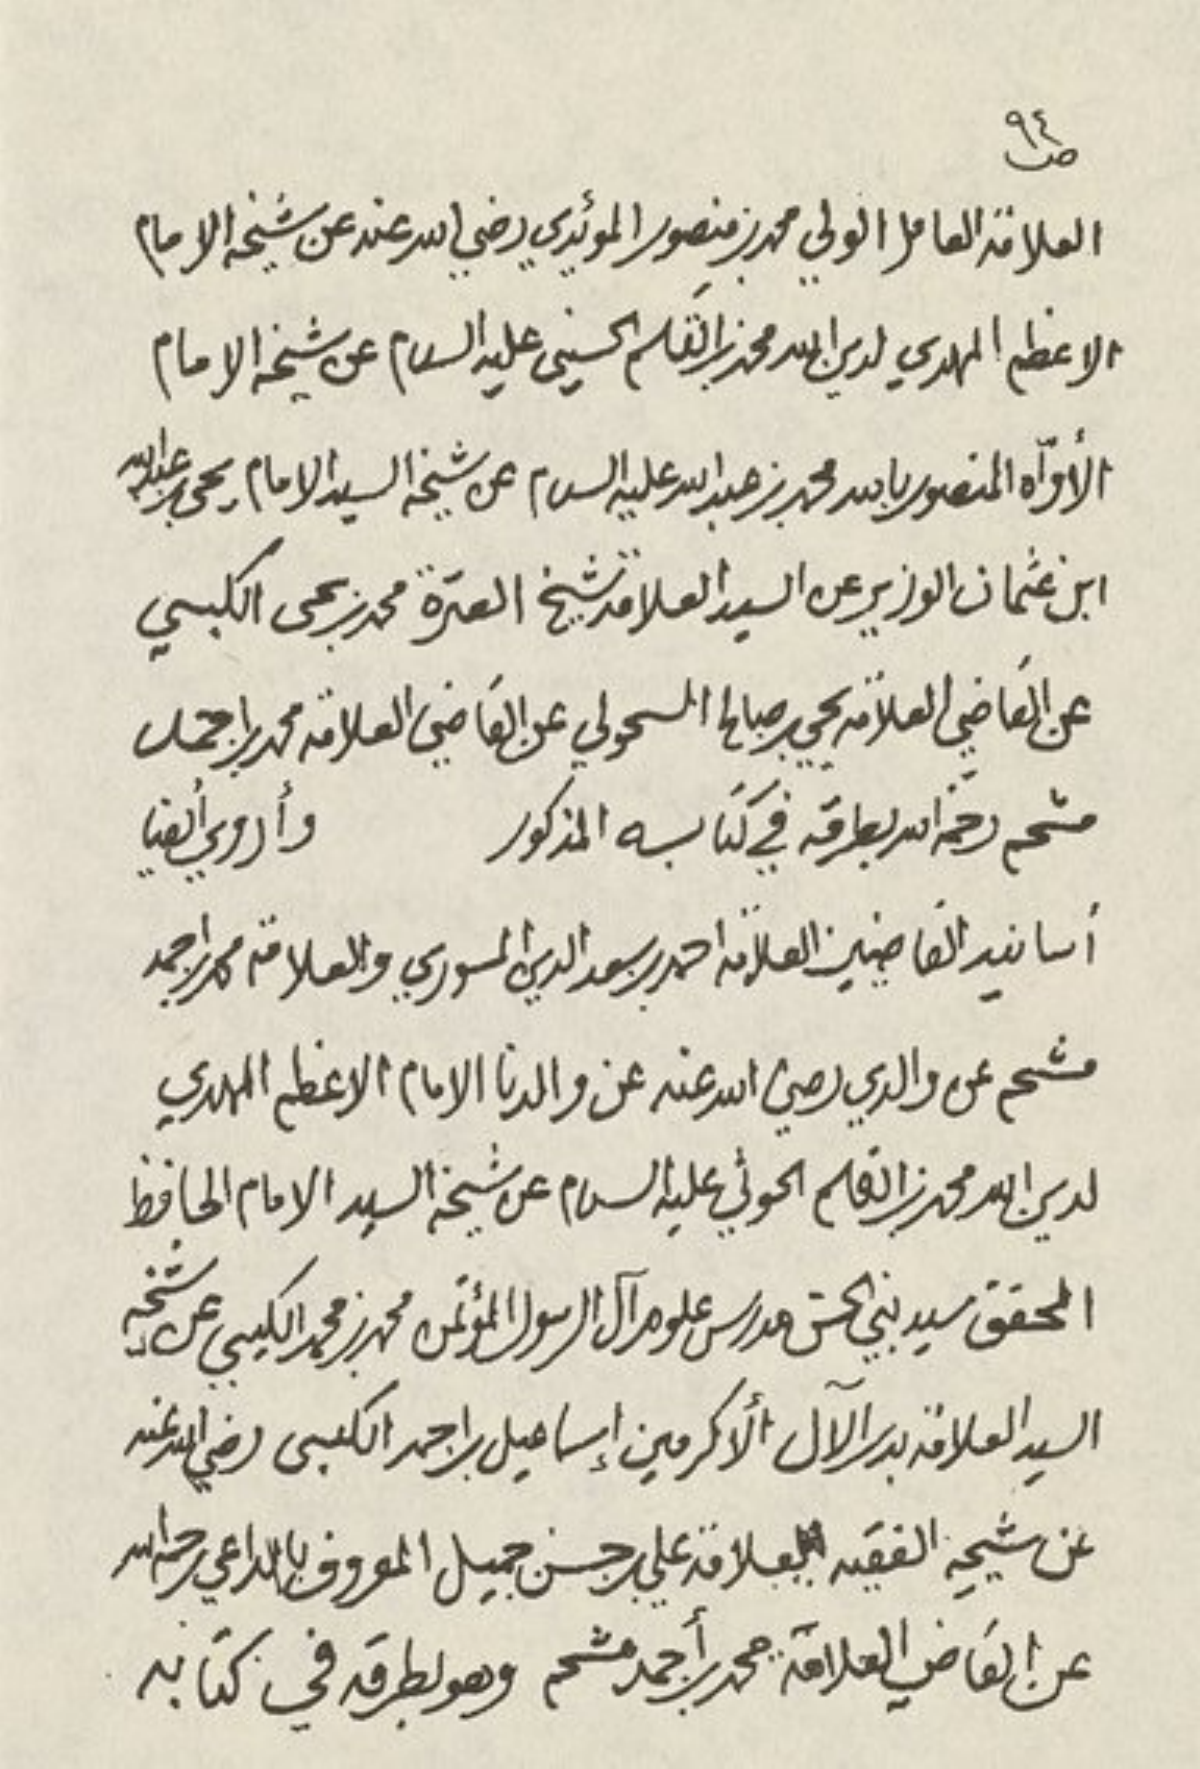 ص ٩٤
العلامة العامل الولي محمد بن منصور المؤيدي رضي الله عنه عن شيخه الإمام
الاعظم المهدي لدين الله محمد بن القسم الحسيني عليه السلام عن شيخه الامام
الأوّاه المنصور بالله محمد بن عبدالله عليه السلام عن شيخه السيد الامام يحيى بن عبدالله
ابن عثمان الوزير عن السيد العلامة شيخ العترة محمد بن يحيى الكبسي
عن القاضي العلامة يحيى بن صالح السحولي عن القاضي العلامة محمد بن احمد
مشحم رحمه الله بطرقه في كتابه المذكور وأروي أيضا
أسانيد القاضيين العلامة احمد بن سعد الدين المسوري والعلامة محمد بن احمد
مشحم عن والدي رضي الله عنه عن والدنا الامام الاعظم المهدي
لدين الله محمد بن القسم الحوثي عليه السلام عن شيخه السيد الامام الحافظ
المحقق سيد بني الحسن مدرس علوم آل الرسول المؤتمن محمد بن محمد الكبسي عن شيخه
السيد العلامة بدر الآل ألاكرمين إسماعيل بن احمد الكبسي رضي الله عنه
عن شيخه الفقيه العلامة علي بن حسن جميل المعروف بالداعي رحمه الله
عن القاضي العلامة محمد بن أحمد مشحم وهو بطرقه في كتابه